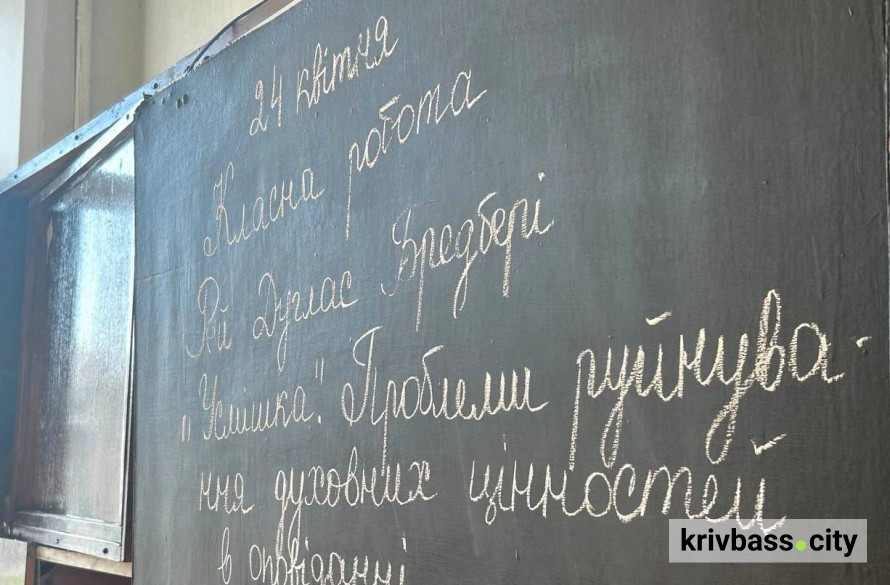 24 квітня
Класна робота
Рей Дуглас Бредбері
"Усмішка". Проблеми руйнува-
ння духовних цінностей
в оповіданні
krivbass.city